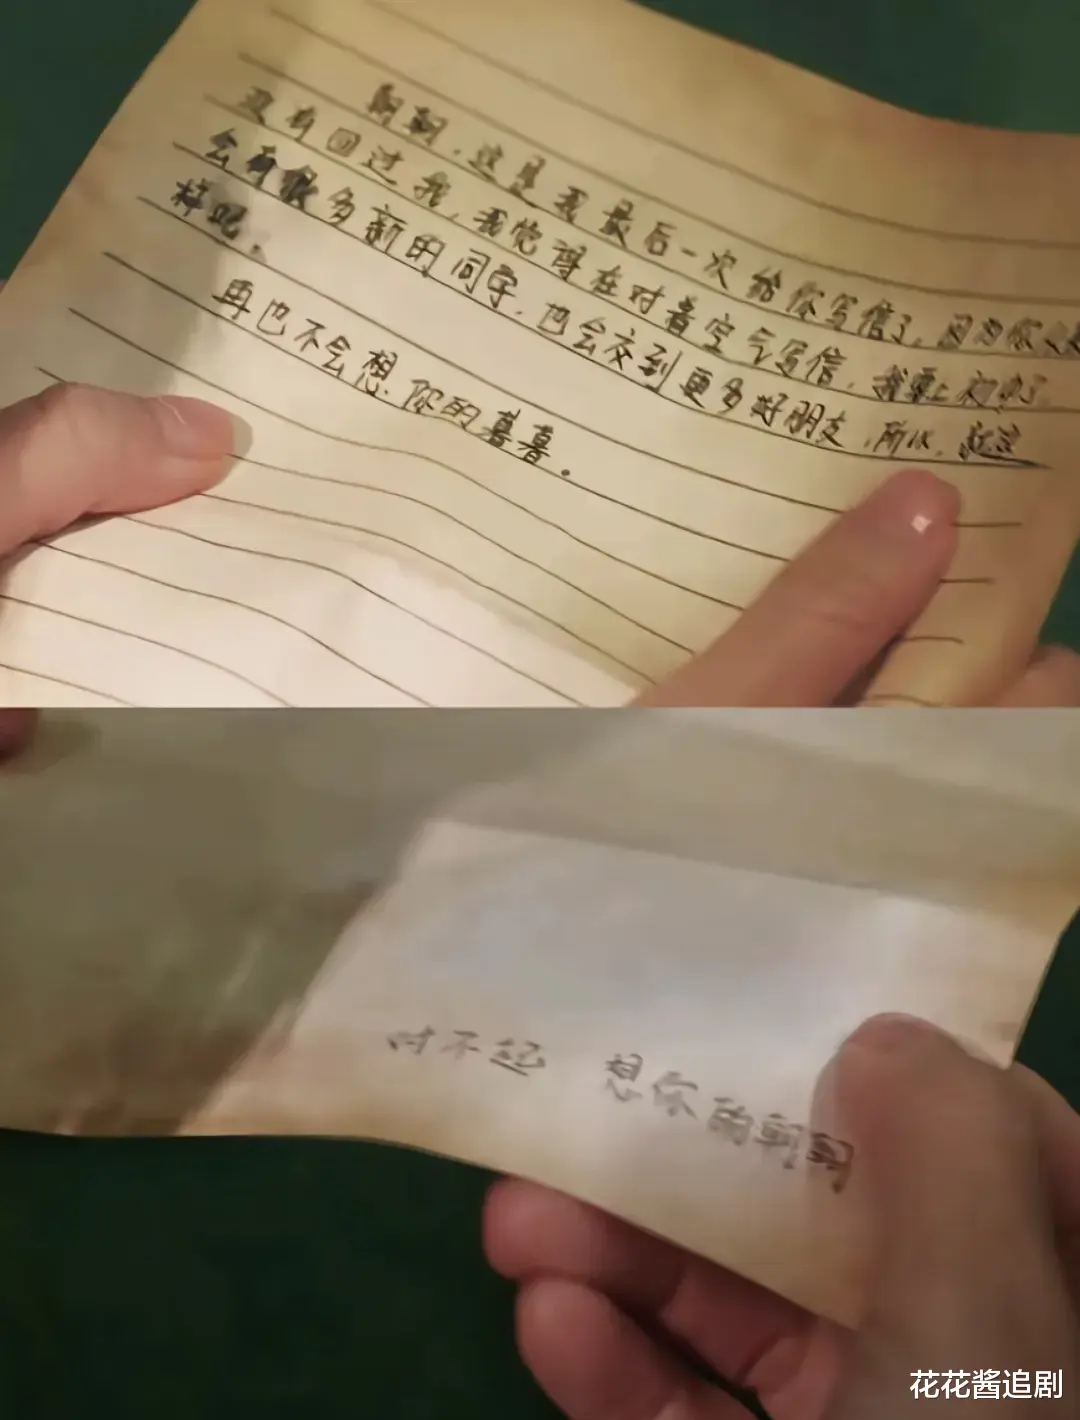 朝朝，这是我最后一次给你写信了，因为你
没有回过我，我觉得在对着空气写信，我要上初中了，
会有很多新的同学，也会交到更多好朋友，所以，就这
样吧。
再也不会想你的暮暮。
对不起 想你的朝朝
花花酱追剧